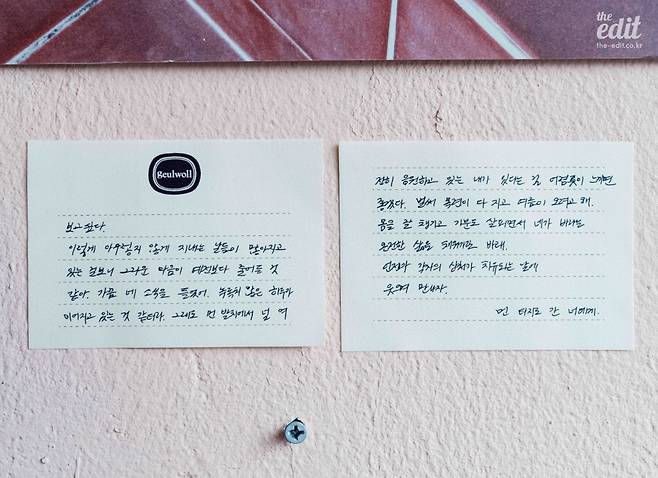 the
edit
the-edit.co.kr
geulwoll
보고 싶다.
이렇게 아무렇지 않게 지내는 날들이 많아지고
있는 걸보니 그리운 마음이 예전보다 줄어든 것
같아. 가끔 네 소식을 들었어. 녹록지 않은 하루가
이어지고 있는 것 같더라. 그래도 먼 발치에서 널 여
전히 응원하고 있는 내가 있다는 걸 어렴풋이 느끼면
좋겠다. 벌써 목련이 다 지고 여름이 오려고 해.
몸을 잘 챙기고 기분도 살피면서 네가 바라는
온전한 삶을 채워가길 바래.
언젠가 각자의 상처가 치유되는 날에
웃으며 만나자.
먼 타지로 간 너에게.